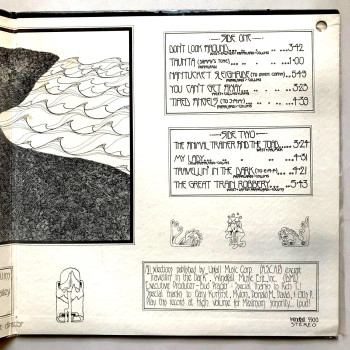 SIDE ONE
DON'T LOOK AROUND ... 3:42
TAUNTA (SAMMY'S TUNE) ... 1:00
PAPPALARDI
NANTUCKET SLEIGHRIDE (TO OWEN COFFIN) ... 5:49
PAPPALARDI - COLLINS
YOU CAN'T GET AWAY ... 3:23
TIRED ANGELS (TO J.M.H.) ... 4:39
PAPPALARDI - COLLINS
SIDE TWO
THE ANIMAL TRAINER AND THE TOAD ... 3:24
WEST - PALMER
MY LADY ... 4:31
TRAVELLIN' IN THE DARK (TO E.M.P.) ... 4:21
PAPPALARDI - COLLINS
THE GREAT TRAIN ROBBERY ... 5:43
All selections published by Upfall Music Corp. (ASCAP) except
"Travellin' in the Dark", Windfall Music Ent., Inc. (BMI)
Executive Producer - Bud Prager - Special Thanks to
Special thanks to Gary Kurfirst, Mylon, Donald M. Davis,
Play this record at high volume for Maximum Sonority... Loud!
Windfall 5500
STEREO